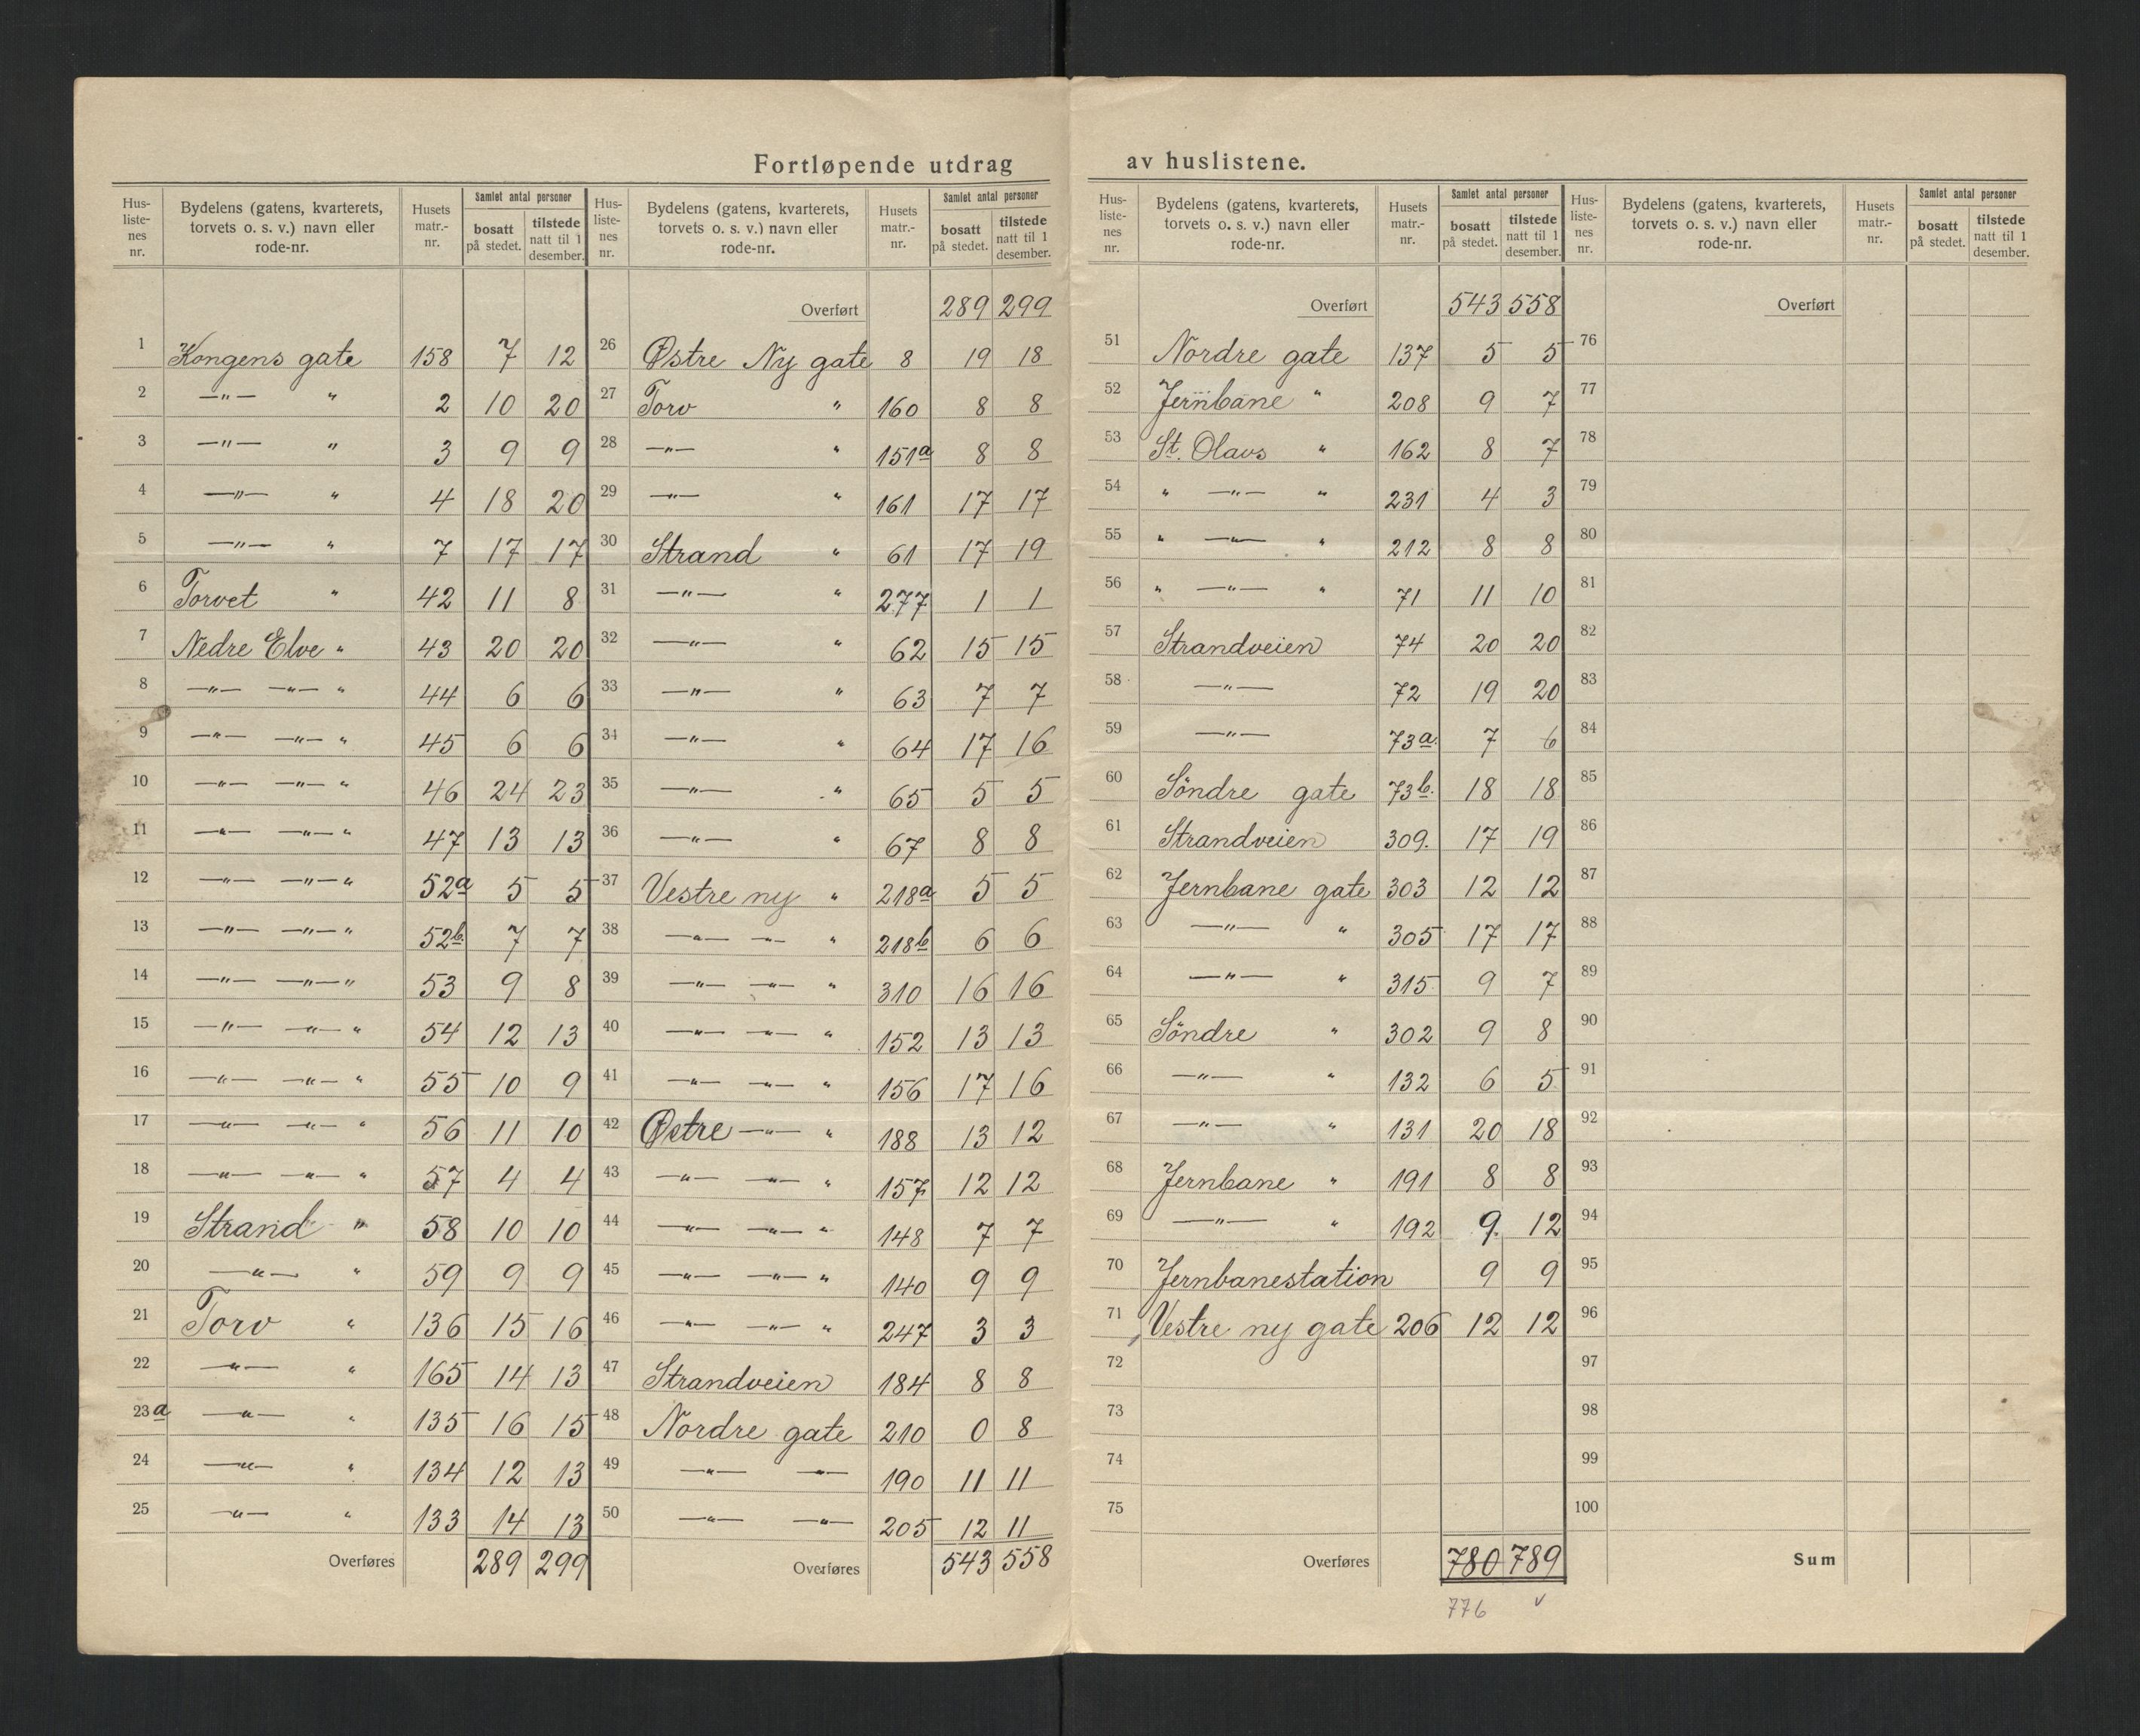 Fortløpende utdrag av huslistene.
Hus-listenes nr. | Bydelens (gatens, kvarterets, torvets o. s. v.) navn eller rode-nr. | Husets matr.-nr. | Samlet antal personer | bosatt på stedet. | tilstede natt til 1 desember.
1 Kongens gate 158 7 12
2 —"— " 2 10 20
3 —"— " 3 9 9
4 —"— " 4 18 20
5 —"— " 7 17 17
6 Torvet " 42 11 8
7 Nedre Elve " 43 20 20
8 —"— —"— " 44 6 6
9 —"— —"— " 45 6 6
10 —"— —"— " 46 24 23
11 —"— —"— " 47 13 13
12 —"— —"— " 52a 5 5
13 —"— —"— " 52b. 7 7
14 —"— —"— " 53 9 8
15 —"— —"— " 54 12 13
16 —"— —"— " 55 10 9
17 —"— —"— " 56 11 10
18 —"— —"— " 57 4 4
19 Strand " 58 10 10
20 —"— " 59 9 9
21 Torv " 136 15 16
22 —"— " 165 14 13
23a —"— " 135 16 15
24 —"— " 134 12 13
25 —"— " 133 14 13
Overføres 289 299
Hus-listenes nr. | Bydelens (gatens, kvarterets, torvets o. s. v.) navn eller rode-nr. | Husets matr.-nr. | Samlet antal personer | bosatt på stedet. | tilstede natt til 1 desember.
Overført 289 299
26 Østre Ny gate 8 19 18
27 Torv " 160 8 8
28 —"— " 151a 8 8
29 —"— " 161 17 17
30 Strand " 61 17 19
31 —"— " 277 1 1
32 —"— " 62 15 15
33 —"— " 63 7 7
34 —"— " 64 17 16
35 —"— " 65 5 5
36 —"— " 67 8 8
37 Vestre ny " 218a 5 5
38 —"— —"— " 218b 6 6
39 —"— —"— " 310 16 16
40 —"— —"— " 152 13 13
41 —"— —"— " 156 17 16
42 Østre —"— " 188 13 12
43 —"— —"— " 157 12 12
44 —"— —"— " 148 7 7
45 —"— —"— " 140 9 9
46 —"— —"— " 247 3 3
47 Strandveien 184 8 8
48 Nordre gate 210 0 8
49 —"— —"— 190 11 11
50 —"— —"— 205 12 11
Overføres 543 558
Hus-listenes nr. | Bydelens (gatens, kvarterets, torvets o. s. v.) navn eller rode-nr. | Husets matr.-nr. | Samlet antal personer | bosatt på stedet. | tilstede natt til 1 desember.
Overført 543 558
51 Nordre gate 137 5 5
52 Jernbane " 208 9 7
53 St. Olavs " 162 8 7
54 " —"— " 231 4 3
55 " —"— " 212 8 8
56 " —"— " 71 11 10
57 Strandveien 74 20 20
58 —"— 72 19 20
59 —"— 73a. 7 6
60 Söndre gate 73b. 18 18
61 Strandveien 309. 17 19
62 Jernbane gate 303 12 12
63 —"— " 305 17 17
64 —"— " 315 9 7
65 Söndre " 302 9 8
66 —"— " 132 6 5
67 —"— " 131 20 18
68 Jernbane " 191 8 8
69 —"— " 192 9. 12
70 Jernbanestation 9 9
71 Vestre ny gate 206 12 12
72
73
74
75
Overføres 780 789
776 v
Hus-listenes nr. | Bydelens (gatens, kvarterets, torvets o. s. v.) navn eller rode-nr. | Husets matr.-nr. | Samlet antal personer | bosatt på stedet. | tilstede natt til 1 desember.
Overført
76
77
78
79
80
81
82
83
84
85
86
87
88
89
90
91
92
93
94
95
96
97
98
99
100
Sum